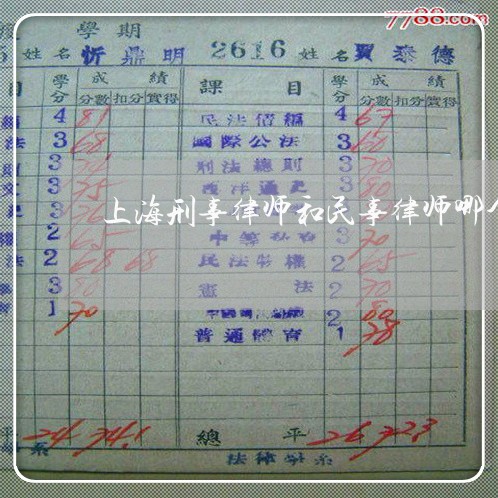 7788.com
學期
姓名 忻鼎明 2616 姓名 賈泰德
目 學分 成績 課目 學分 成績
分數 扣分 實得 分數 扣分 實得
4 81 民法債編 4 67
法 3 68 國際公法 3 60
3 刑法總則 3 70
3 75 西洋通史 3 80
上海刑事律师和民事律师哪
2 65 3 70
法 2 68 68 民法物權 2 65
3 80 憲法 2 70
1 70 2 80
普通體育 1 78
平 24 74.1 總平 26 72.3
系 法律學系